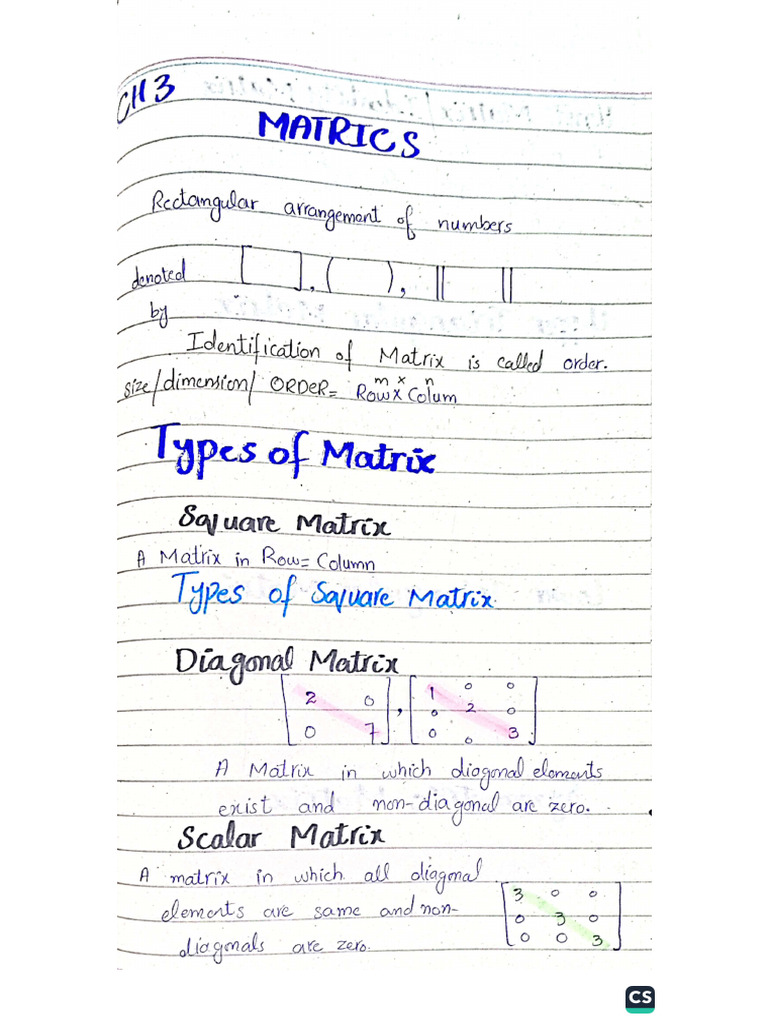 CH 3
MATRICS
Rectangular arrangement of numbers
denoted [ ], ( ), || ||
by
Identification of Matrix is called order.
m x n
size/dimension/ ORDER= Row x Colum
Types of Matrix
Square Matrix
A Matrix in Row= Column
Types of Square Matrix
Diagonal Matrix
[2 0
0 7], [1 0 0
0 2 0
0 0 3]
A Matrix in which diagonal elements
exist and non-diagonal are zero.
Scalar Matrix
A matrix in which all diagonal
elements are same and non-
diagonals are zero.
[3 0 0
0 3 0
0 0 3]
CS